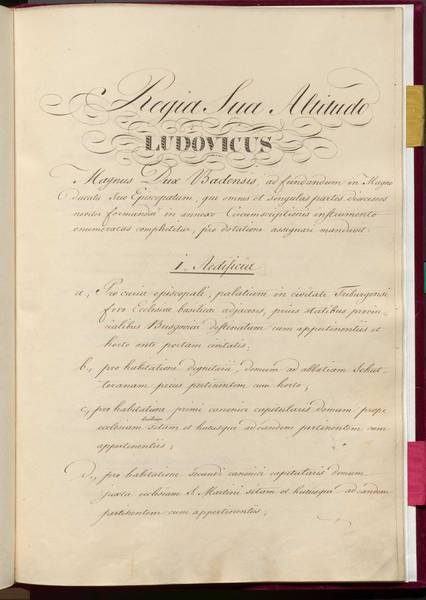 Regia Sua Altitudo
LUDOVICUS
Magnus Dux Badensis, ad fundandum in Magno
Ducatu Suo Episcopatum, qui omnes et singulas partes dioeceseos
noviter formandae in annexo Circumscriptionis instrumento
enumeratas complectitur, pro dotatione assignari mandavit:
i. Aedificia
a., Pro curia episcopali, palatium in civitate Friburgensi
foro Ecclesiae basilicae adjacens, prius statibus provin-
cialibus Brisgoviae destinatum cum appertinentiis et
horto ante portam civitatis;
b., pro habitatione dignitarii, domum ad abbatiam Schut-
teranam prius pertinentem cum horto;
c., pro habitatione primi canonici capitularis domum prope
ecclesiam sitam et hucusque ad eandem pertinentem cum
appertinentiis;
d., pro habitatione secundi canonici capitularis domum
juxta ecclesiam S. Martini sitam et hucusque ad eandem
pertinentem cum appertinentiis;